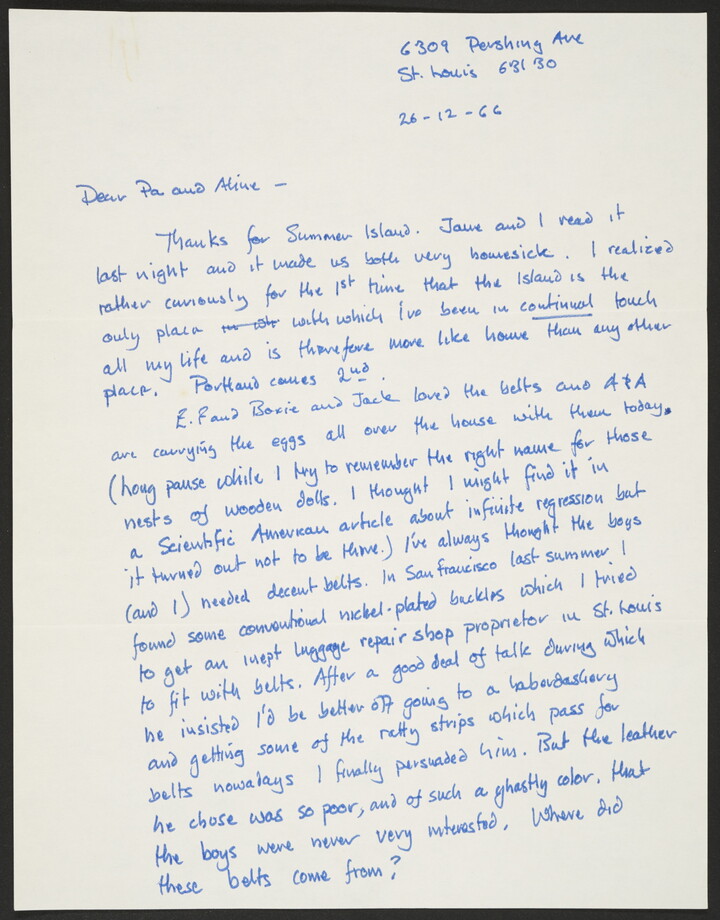 6309 Pershing Ave
St. Louis 63130
26-12-66
Dear Pa and Aline —
Thanks for Summer Island. Jane and I read it
last night and it made us both very homesick. I realized
rather curiously for the 1st time that the Island is the
only place with which I've been in continual touch
all my life and is therefore more like home than any other
place. Portland comes 2nd.
E.F and Boxie and Jack loved the belts and A & A
are carrying the eggs all over the house with them today.
(Long pause while I try to remember the right name for those
nests of wooden dolls. I thought I might find it in
a Scientific American article about infinite regression but
it turned out not to be there.) I've always thought the boys
(and I) needed decent belts. In San Francisco last summer I
found some conventional nickel-plated buckles which I tried
to get an inept luggage repair shop proprietor in St. Louis
to fit with belts. After a good deal of talk during which
he insisted I'd be better off going to a haberdashery
and getting some of the ratty strips which pass for
belts nowadays I finally persuaded him. But the leather
he chose was so poor, and of such a ghastly color, that
the boys were never very interested. Where did
these belts come from?